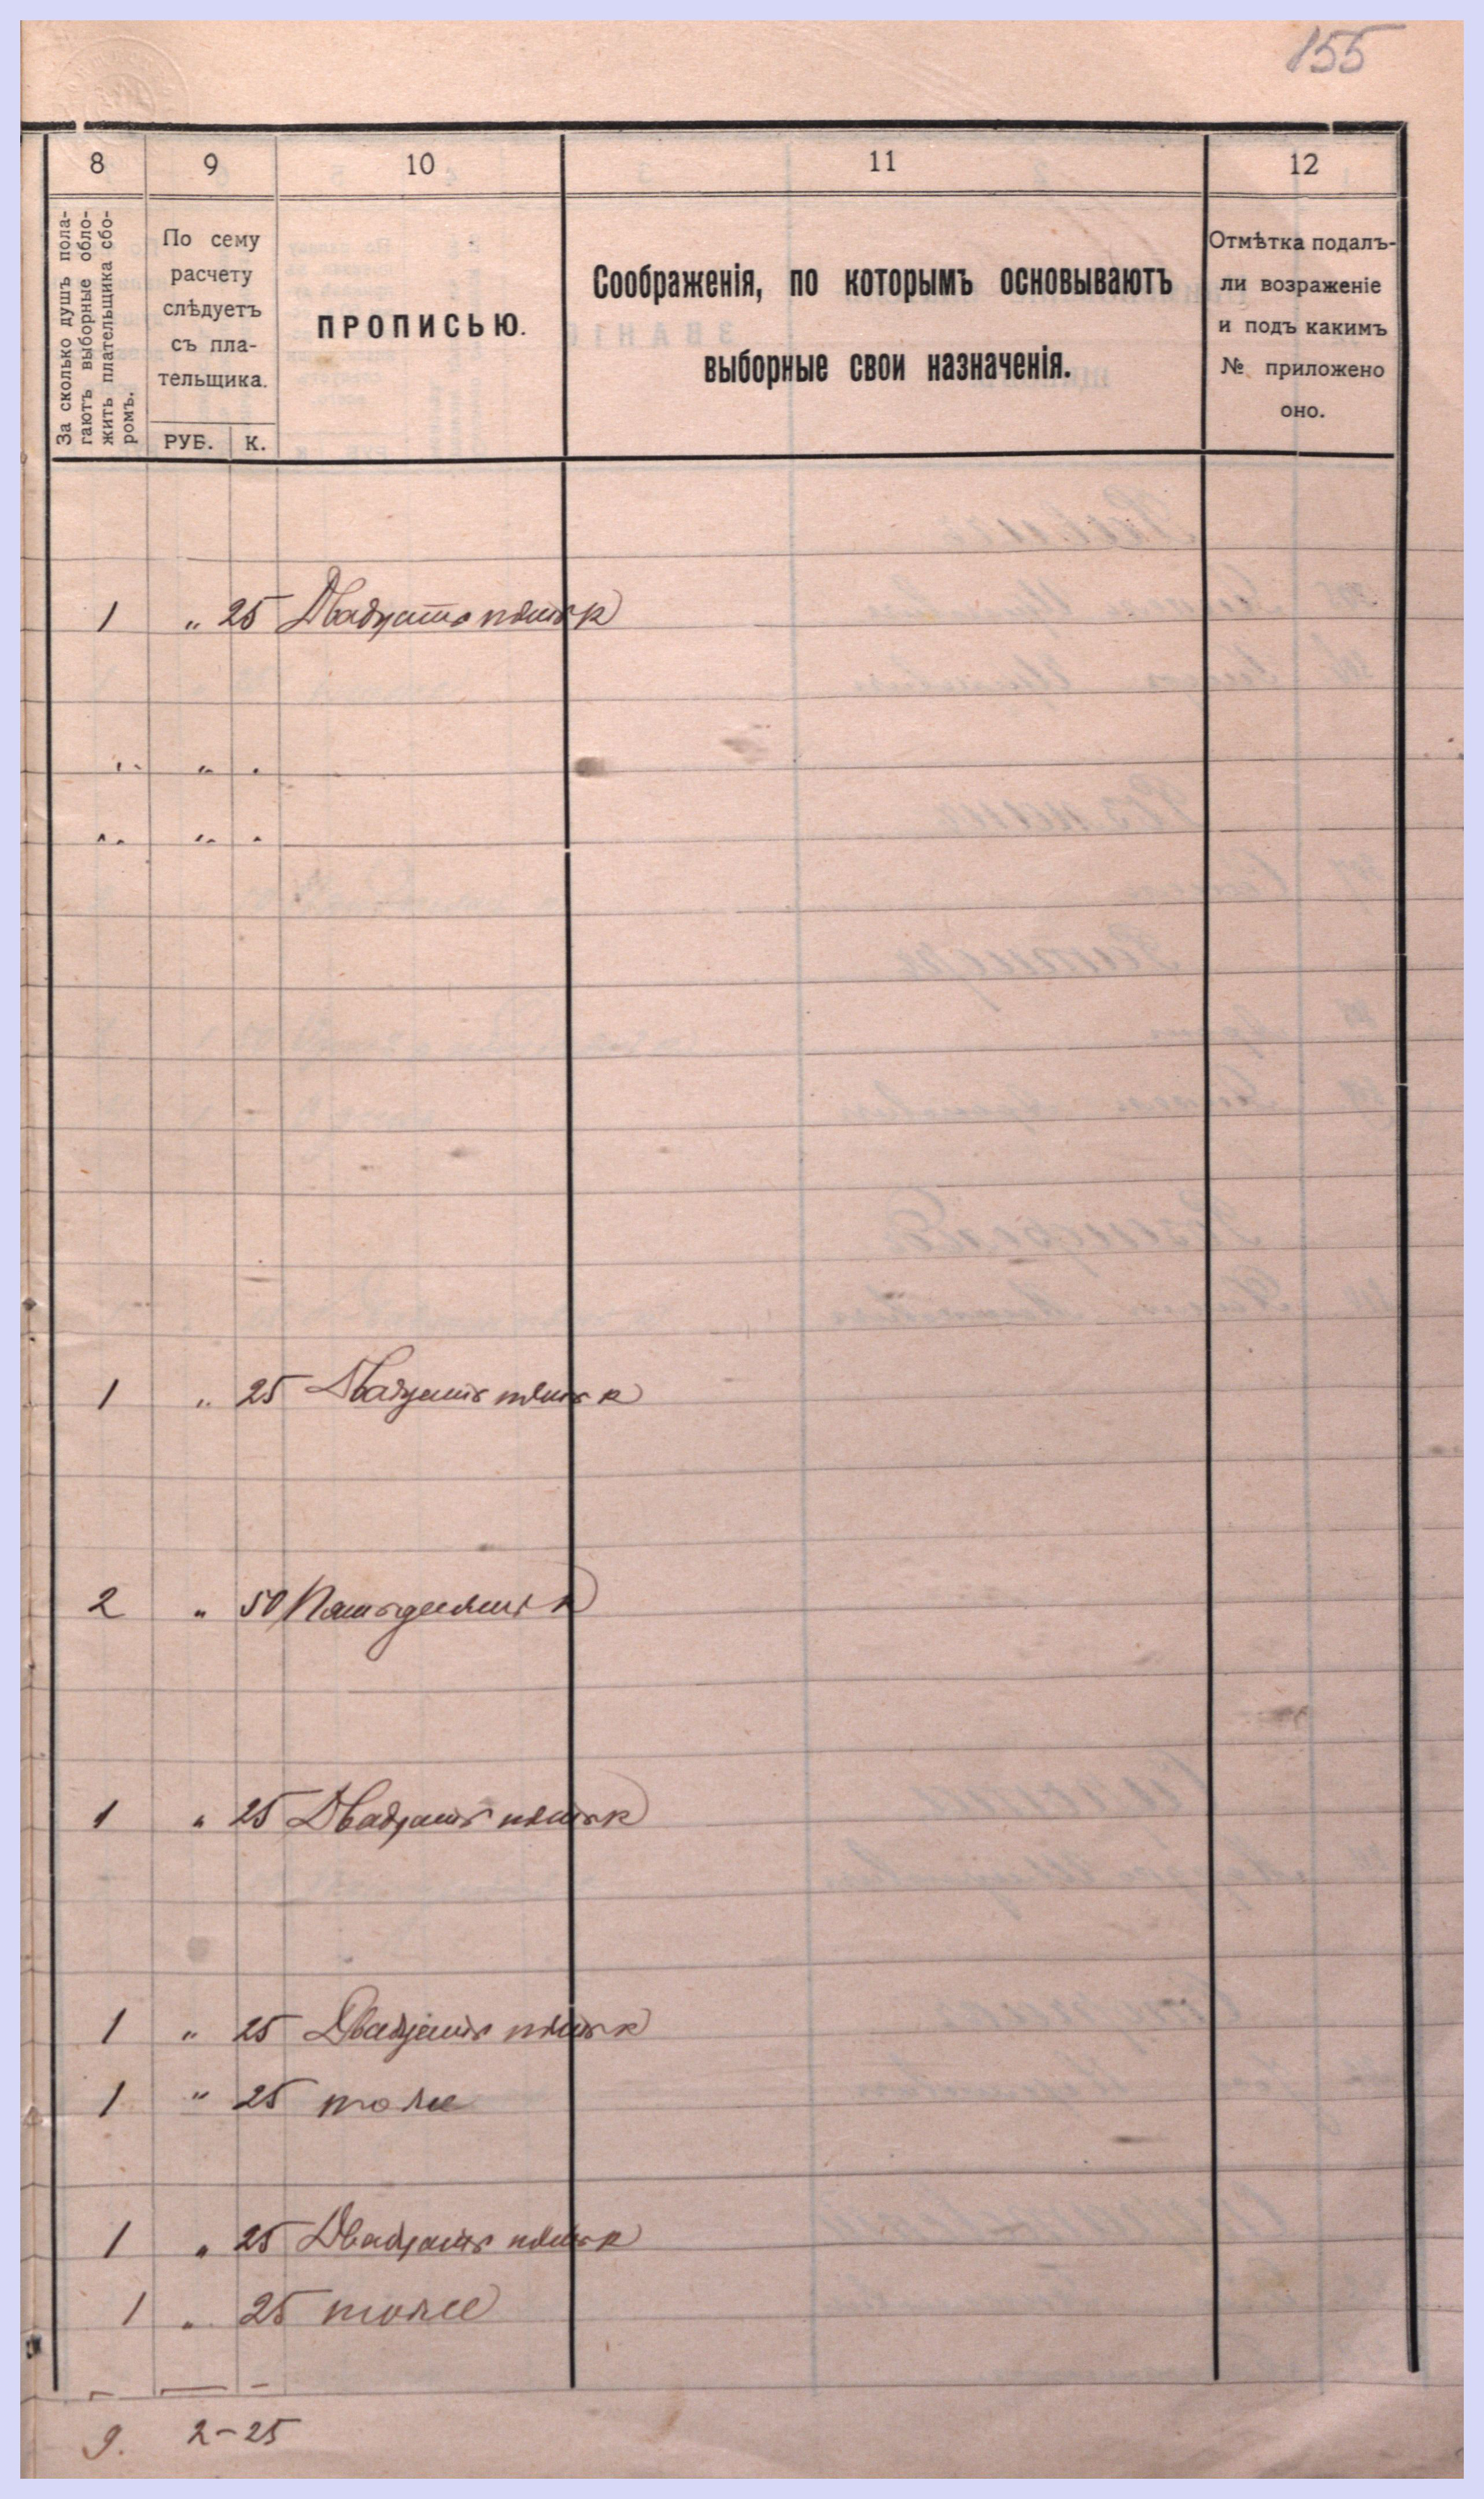 155
8 9 10 11 12
За сколько душъ пола-
гаютъ выборные обло-
жить плательщика сбо-
ромъ.
По сему
расчету
слѣдуетъ
съ пла-
тельщика.
РУБ. К.
ПРОПИСЬЮ.
Соображенія, по которымъ основываютъ
выборные свои назначенія.
Отмѣтка подалъ-
ли возраженіе
и подъ какимъ
№ приложено
оно.
1 " 25 Двадцать пять к
" " "
" " "
1 " 25 Двадцать пять к
2 " 50 Пятьдесятъ к
1 " 25 Двадцать пять к
1 " 25 Двадцать пять к
1 " 25 тоже
1 " 25 Двадцать пять к
1 " 25 тоже
9. 2-25